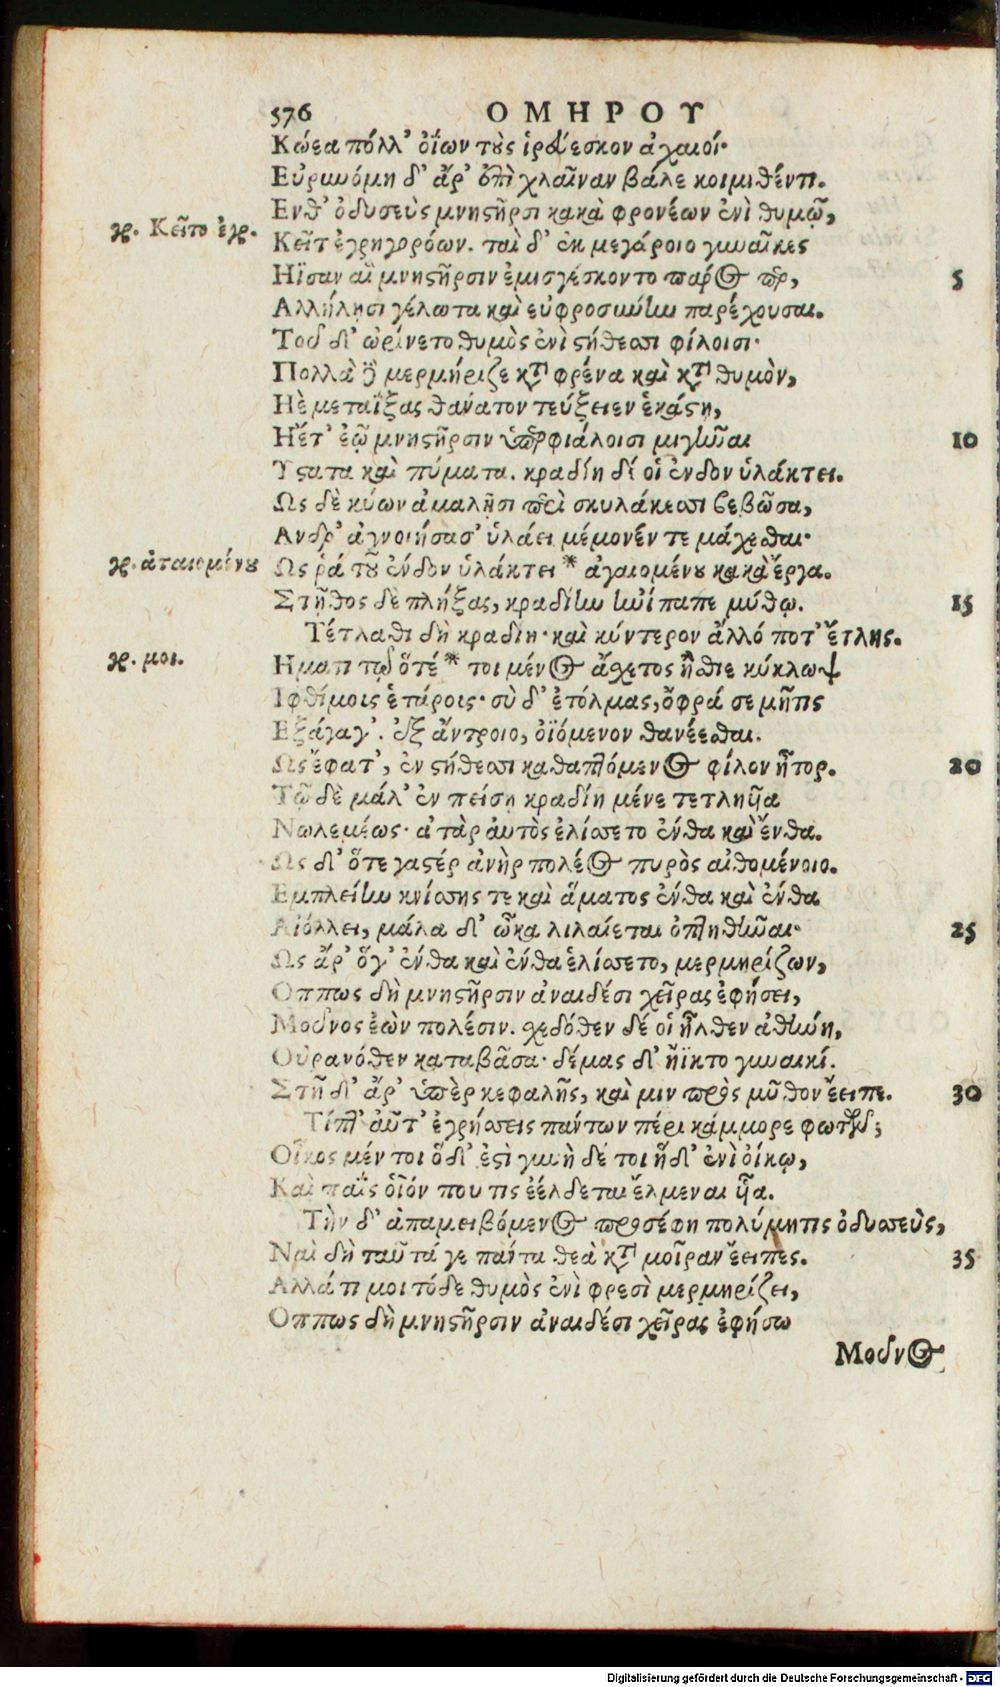 576 ΟΜΗΡΟΥ
Κώεα πόλλ' ὀΐων τοὺς ἱρεύεσκον ἀχαιοί·
Εὐρυνόμη δ' ἄρ' ἐπὶ χλαῖναν βάλε κοιμιθέντι.
Ενθ' ὀδυσεὺς μνηστῆρσι κακὰ φρονέων ἐνὶ θυμῷ,
γρ. Κεῖτο ἐγρ.
Κεῖτ ἐγρηγορόων. ταὶ δ' ἐκ μεγάροιο γυναῖκες
Ηϊσαν αἳ μνηστῆρσιν ἐμισγέσκοντο πάρος περ, 5
Αλλήλησι γέλωτα καὶ εὐφροσύνην παρέχουσαι.
Τοῦ δ' ὠρίνετο θυμὸς ἐνὶ στήθεσσι φίλοισι·
Πολλὰ δὲ μερμήριζε κατὰ φρένα καὶ κατὰ θυμὸν,
Ηὲ μεταΐξας θάνατον τεύξειεν ἑκάστη,
Ηἔτ' ἐῷ μνηστῆρσιν ὑπερφιάλοισι μιγῆναι 10
Υστατα καὶ πύματα. κραδίη δέ οἱ ἔνδον ὑλάκτει.
Ως δὲ κύων ἀμαλῇσι περὶ σκυλάκεσσι βεβῶσα,
Ανδρ' ἀγνοιήσασ' ὑλάει μέμονέν τε μάχεσθαι·
γρ. ἀταιομένου
Ως ῥά τοῦ ἔνδον ὑλάκτει * ἀγαιομένου κακὰ ἔργα.
Στῆθος δὲ πλήξας, κραδίην ἠνίπαπε μύθῳ. 15
Τέτλαθι δὴ κραδίη· καὶ κύντερον ἄλλό ποτ' ἔτλης.
γρ. μοι.
Ηματι τῷ ὅτέ * τοι μένος ἄσχετος ἤσθιε κύκλωψ
Ιφθίμοις ἑτάροις· σὺ δ' ἐτόλμας, ὄφρά σε μῆτις
Εξάγαγ'. ἐξ ἄντροιο, ὀϊόμενον θανέεσθαι.
Ως ἔφατ', ἐν στήθεσσι καθαπτόμενος φίλον ἦτορ. 20
Τῷ δὲ μάλ' ἐν πείσῃ κραδίη μένε τετληῖα
Νωλεμέως· ἀτὰρ αὐτὸς ἑλίσσετο ἔνθα καὶ ἔνθα.
Ως δ' ὅτε γαστέρ ἀνὴρ πολέος πυρὸς αἰθομένοιο.
Εμπλείην κνίσσης τε καὶ αἵματος ἔνθα καὶ ἔνθα
Αἰόλλει, μάλα δ' ὦκα λιλαίεται ὀπτηθῆναι· 25
Ως ἄρ' ὅγ' ἔνθα καὶ ἔνθα ἑλίσσετο, μερμηρίζων,
Οππως δὴ μνηστῆρσιν ἀναιδέσι χεῖρας ἐφήσει,
Μοῦνος ἐὼν πολέσιν. σχεδόθεν δέ οἱ ἦλθεν ἀθήνη,
Οὐρανόθεν καταβᾶσα· δέμας δ' ἤϊκτο γυναικί.
Στῆ δ' ἄρ' ὑπὲρ κεφαλῆς, καὶ μιν πρὸς μῦθον ἔειπε. 30
Τίπτ' αὖτ' ἐγρήσσεις πάντων πέρι κάμμορε φωτῶν;
Οἶκος μέν τοι ὅδ' ἐστὶ γυνὴ δέ τοι ἥδ' ἐνὶ οἴκῳ,
Καὶ παῖς οἷόν που τις ἐέλδεται ἔλμεναι ῗα.
Τὴν δ' ἀπαμειβόμενος προσέφη πολύμητις ὀδυσσεὺς,
Ναὶ δὴ ταῦτά γε πάντα θεὰ κατὰ μοῖραν ἔειπες. 35
Αλλά τι μοι τόδε θυμὸς ἐνὶ φρεσὶ μερμηρίζει,
Οππως δὴ μνηστῆρσιν ἀναιδέσι χεῖρας ἐφήσω
Μοῦνος
Digitalisierung gefördert durch die Deutsche Forschungsgemeinschaft - DFG